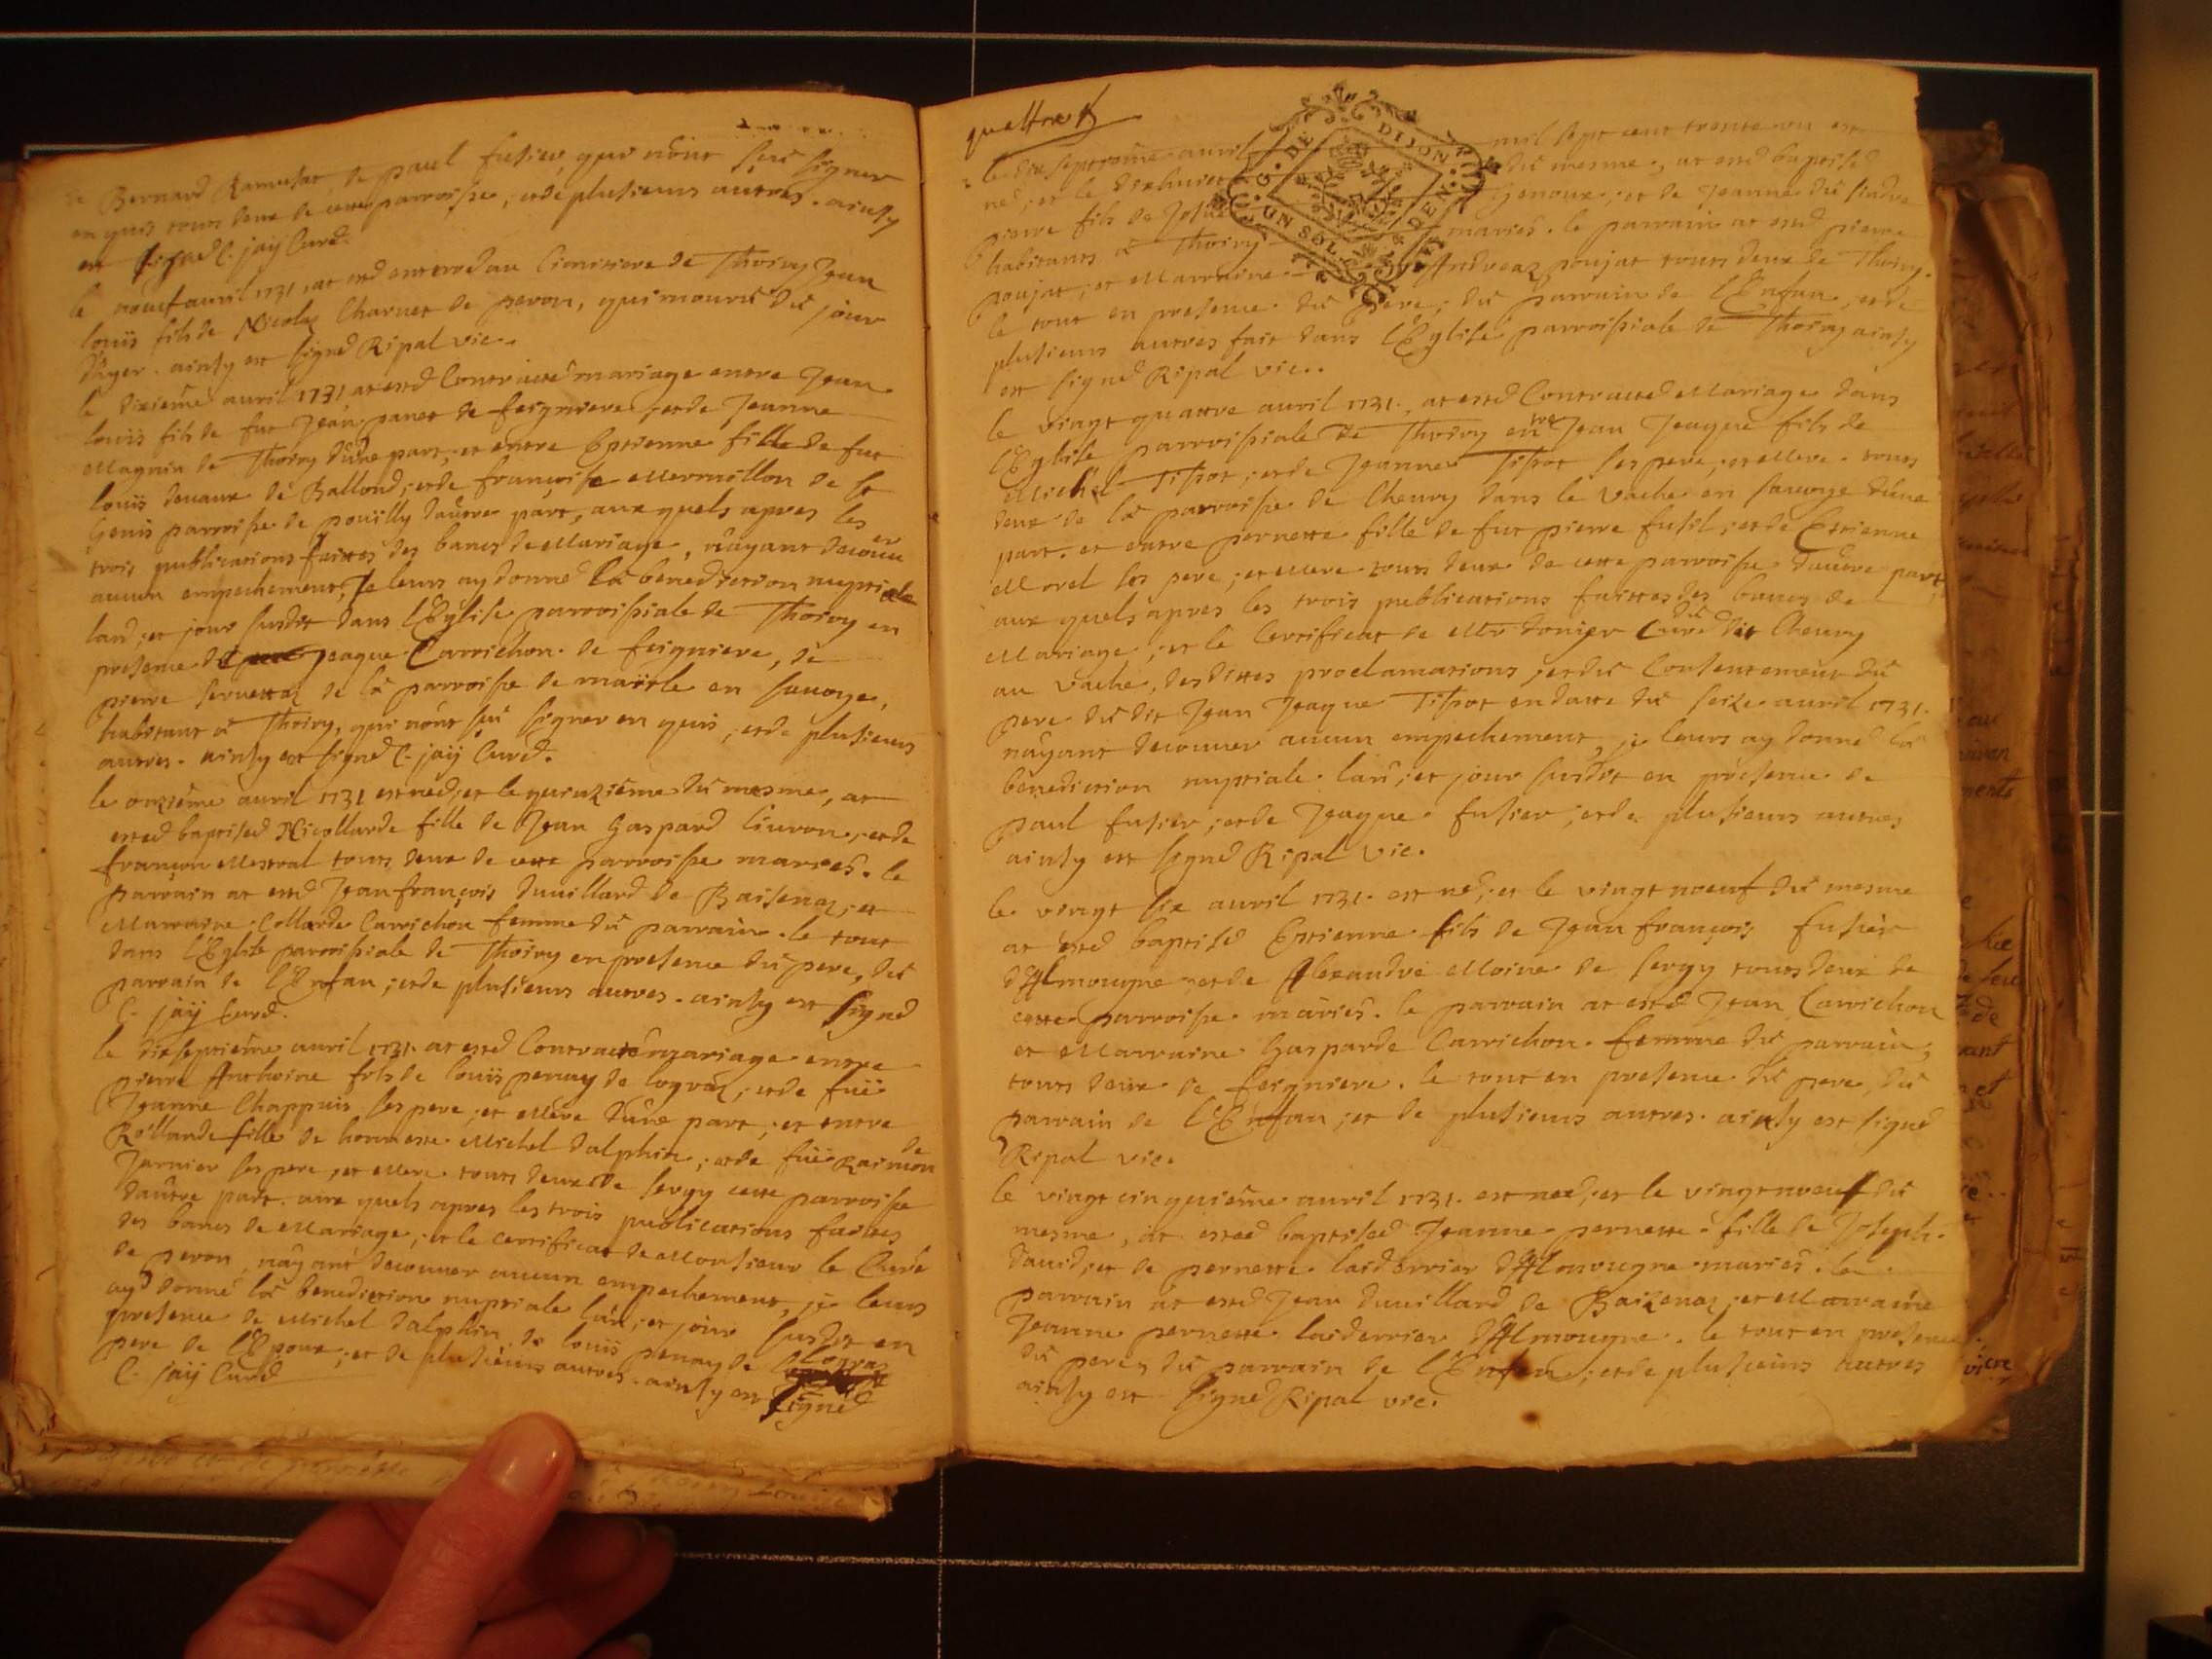 de Bernard Ramusat, de paul fusier, qui nônt sçu signer
en quis tous deux de cette parroisse, et de plusieurs autres. ainsy
est signed C. jaÿ Curé.
le noeuf avril 1731, at eté enterré au Cimitiere de Thoiry Jean
loüis fils de Nicolas Charvet de peron, qui mourü dü jour
d'hyer. ainsy est signed Ripal vic.
le dixieme avril 1731 at esté Contracté mariage entre Jean
loüis fils de fut Jean panet de feigniere, et de Jeanne
Magnin de Thoiry d'ûne part, et entre Estienne fille de fut
loüis devaux de Ballond; et de françoise Mermillon de St
Genis parroisse de poüilly d'autre part, aux quels apres les
trois publications faittes des bancs de Mariage, n'ayant decouver
aucun empechement, Je leurs ay donné la benediction nuptiale
lan, et jour susdit dans l'Eglise parroissiale de Thoiry en
presence de Jeaque Carrichon de feigniere, de
pierre servettaz de la parroisse de en savoye,
habitant a Thoiry, qui nônt sçu signer en quis, et de plusieurs
autres. ainsy est signé C. jaÿ Curé.
le onzieme avril 1731 est née, et le quinzieme du mesme, at
estée baptisée Nicollarde fille de Jean Gaspard livron, et de
françoise Mestral tous deux de cette parroisse mariés. le
parrain at esté Jean françois duvillard de Baisenaz, et
Marraine Collarde Carrichon femme du parrain. le tout
dans l'Eglise parroissiale de Thoiry en presence du pere, du
parrain de l'Enfan, et de plusieurs autres. ainsy est signé
C. jaÿ Curé.
le dixseptieme avril 1731. at esté Contracté mariage entre
pierre Anthoine fils de loüis penay de lograz, et de füe
Jeanne Chappuis ses pere, et Mere d'ûne part, et entre
Rollande fille de honneste Michel dalphin, et de füe Raimonde
Jarnier ses pere, et Mere tous deux de sergy cette parroisse
d'autre part. aux quels apres les trois publications faittes
des bancs de Mariage, et le certificat de Monsieur le Curé
de peron, n'ayant decouver aucun empechement, je leurs
ay donné la benediction nuptiale lan, et jour susdit en
presence de Michel dalphin, de loüis penay de logras
pere de l'Epoux, et de plusieurs autres. ainsy est signé
C. jaÿ Curé
quattre
G. DE DIJON
UN SOL DEN
le dixseptieme avril mil sept cent trente un est
né, et le dixhuict du mesme, at esté baptisé
pierre fils de Genoux, et de Jeanne du
habitants a Thoiry mariés. le parrain at esté pierre
poujat, et Marraine Andreaz poujat tous deux de Thoiry.
le tout en presence du pere, du parrain de l'Enfan, et de
plusieurs autres fait dans l'Eglise parroissiale de Thoiry ainsy
est signé Ripal vic.
le vingt quattre avril 1731. at esté Contracté Mariage dans
l'Eglise parroissiale de Thoiry entre Jean Jeaque fils de
Michel Tissot, et de Jeanne Tissot ses pere, et Mere tous
deux de la parroisse de Chevry dans le Vache en savoye d'ûne
part. et entre pernette fille de fut pierre fusil, et de Estienne
Morel ses pere, et Mere tous deux de cette parroisse d'autre part,
aux quels apres les trois publications faittes des bancs de
Mariage, et le Certificat de Mr donier Curé dudit Chevry
au Vache, desdittes proclamations, et du Consentement du
pere du dit Jean Jeaque Tissot en datte du seize avril 1731.
n'ayant decouver aucun empechement, je leurs ay donné la
benediction nuptiale. lan, et jour susdit en presence de
paul fusier, et de Jeaque fusier, et de plusieurs autres
ainsy est signé Ripal vic.
le vingt six avril 1731. est né, et le vingt noeuf du mesme
at esté baptisé Estienne fils de Jean françois fusier
d'Almougne, et de Alexandre Moine de sergy tous deux de
cette parroisse mariés. le parrain at esté Jean Carrichon
et Marraine Gasparde Carrichon femme du parrain,
tous deux de feigniere. le tout en presence du pere, du
parrain de l'Enfan, et de plusieurs autres. ainsy est signé
Ripal vic.
le vingt cinquieme avril 1731. est née, et le vingtnoeuf du
mesme, at estée baptisée Jeanne pernette fille de Joseph
david, et de pernette laiderrier d'Almougne mariés. le
parrain at esté Jean duvillard de Baizenaz, et Marraine
Jeanne pernette laiderrier d'Almougne. le tout en presence
du pere, du parrain de l'Enfan, et de plusieurs autres
ainsy est signé Ripal vic.